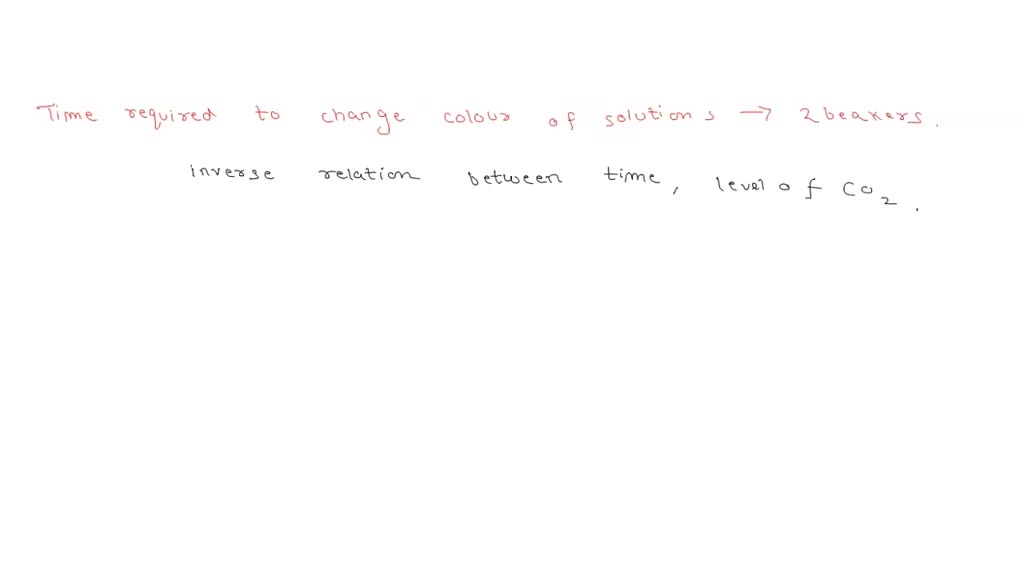 Time required to change colour of solutions → 2 beakers.
inverse relation between time, level of CO2.